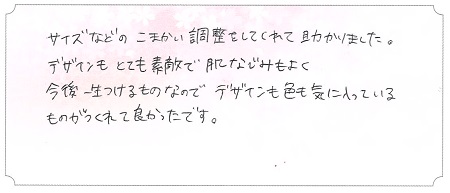 サイズなどの こまかい 調整をしてくれて 助かりました。
デザインも とても素敵で 肌なじみもよく
今後一生つけるものなので デザインも色も気に入っている
ものがつくれて良かったです。